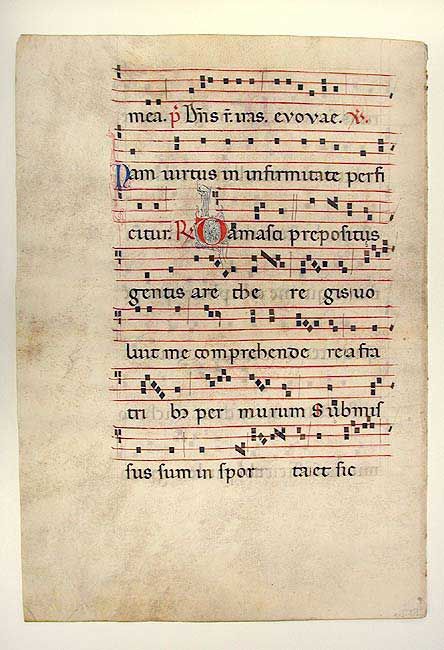 mea. p̄ Dn̄s r̄. uas. evovae. ꝟ.
Nam uirtus in infirmitate perfi
citur. R. Damasci prepositus
gentis are the re gis uo
luit me comprehende re a fra
tri bꝫ per murum Submis
sus sum in spor ta et sic